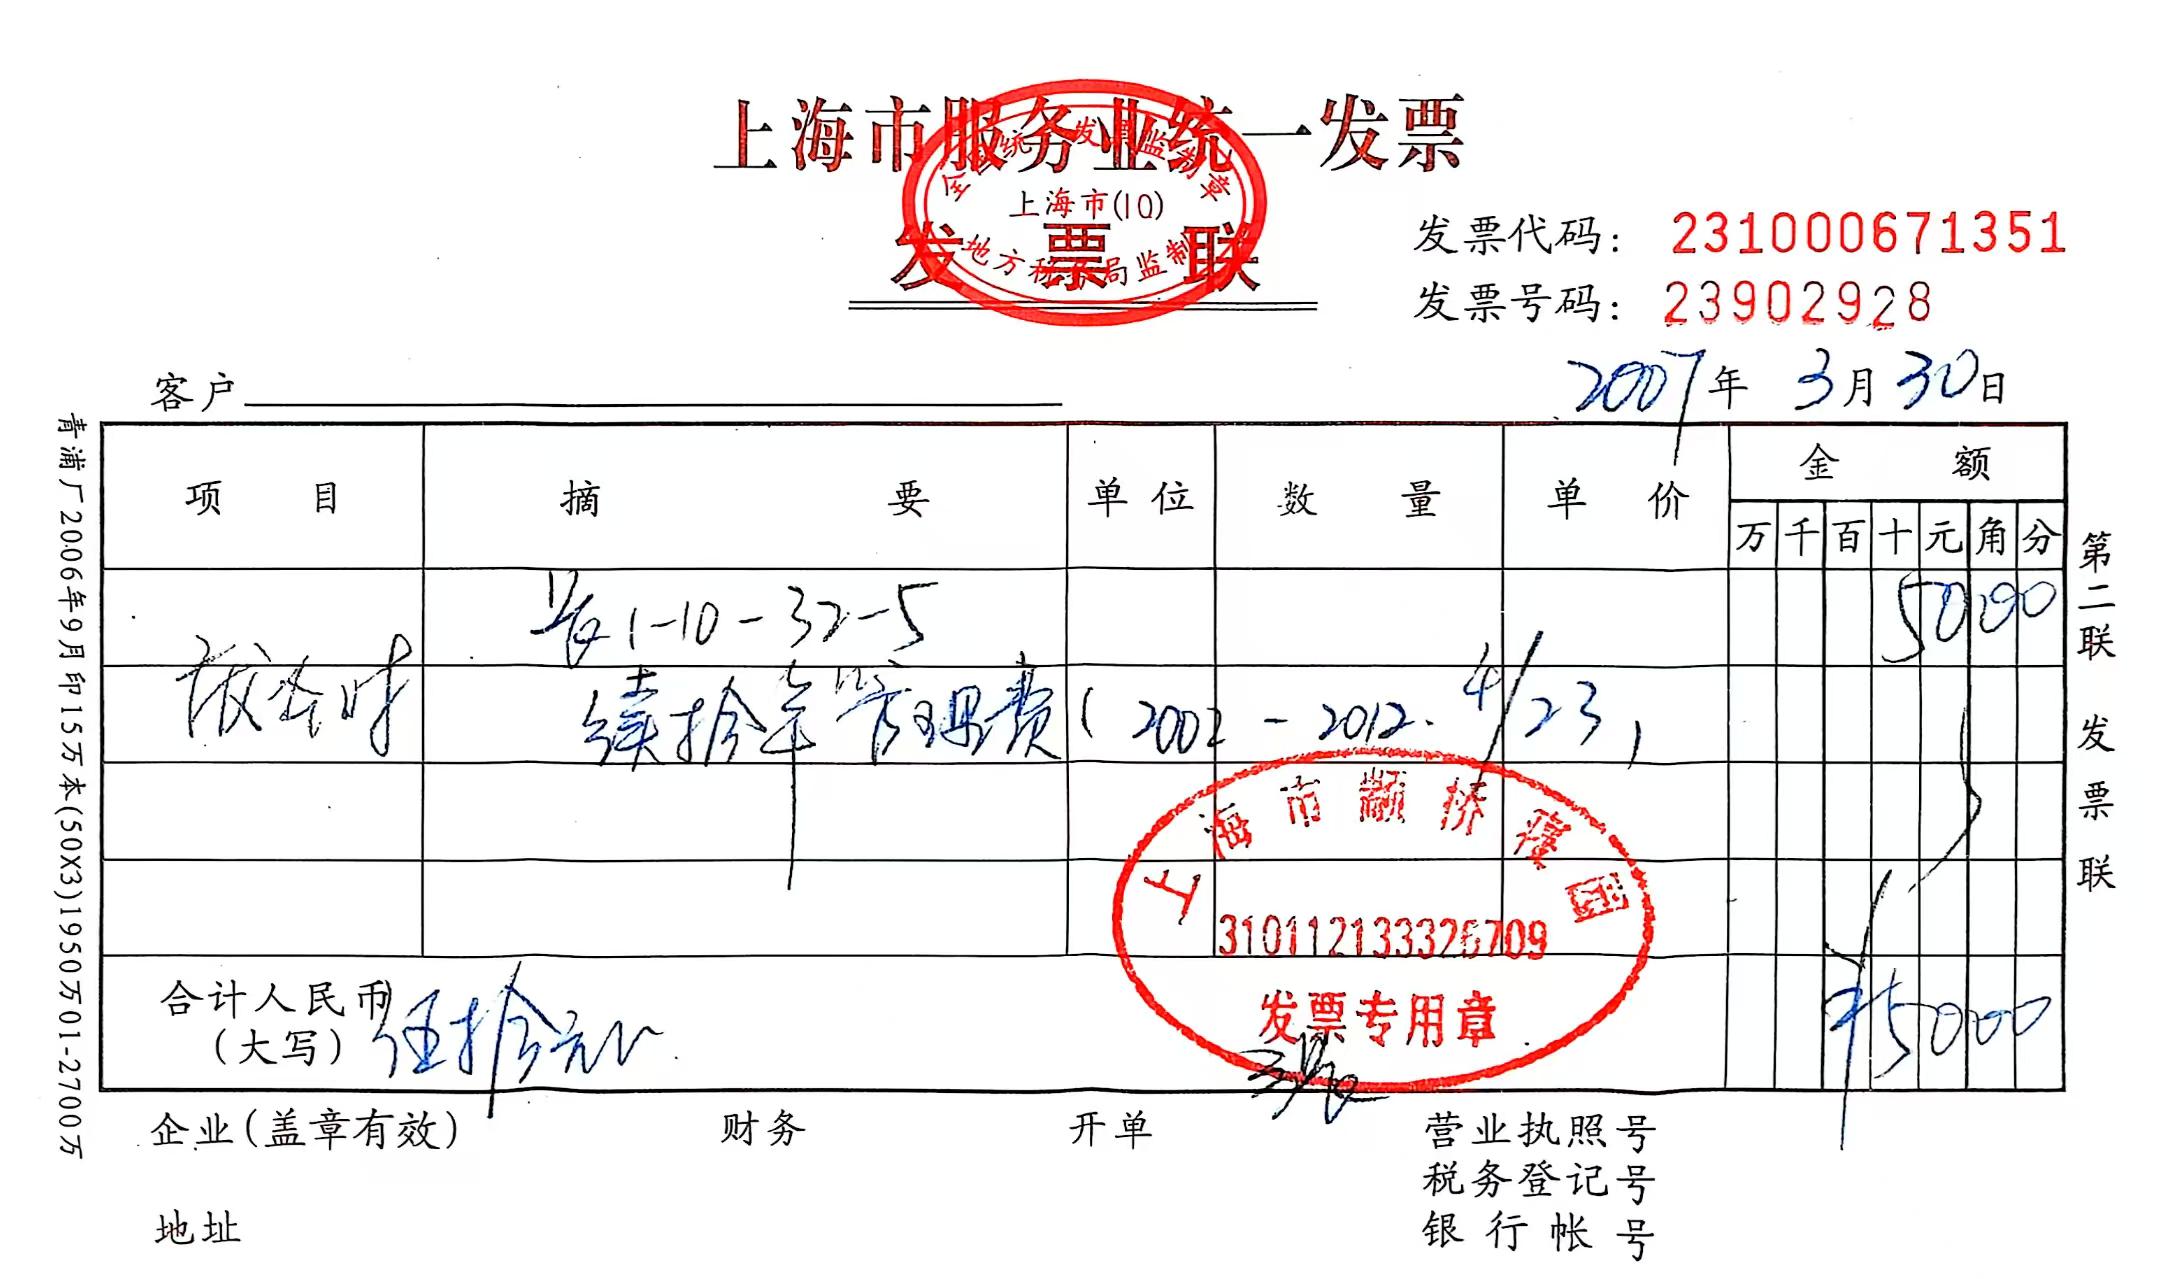 上海市服务业统一发票
全国统一发票监制章
上海市(10)
地方税务局监制
发票联
发票代码：231000671351
发票号码：23902928
客户
2007年3月30日
项目 摘要 单位 数量 单价 金额
万千百十元角分
1-10-32-5 5000
续拾年管理费(2002-2012.4/23)
上海市颛桥寝园
310112133326709
发票专用章
合计人民币(大写) 伍拾元 ¥5000
企业(盖章有效) 财务 开单 营业执照号
税务登记号
地址 银行帐号
第二联 发票联
青浦厂2006年9月印15万本(50X3)1950万501-2700万